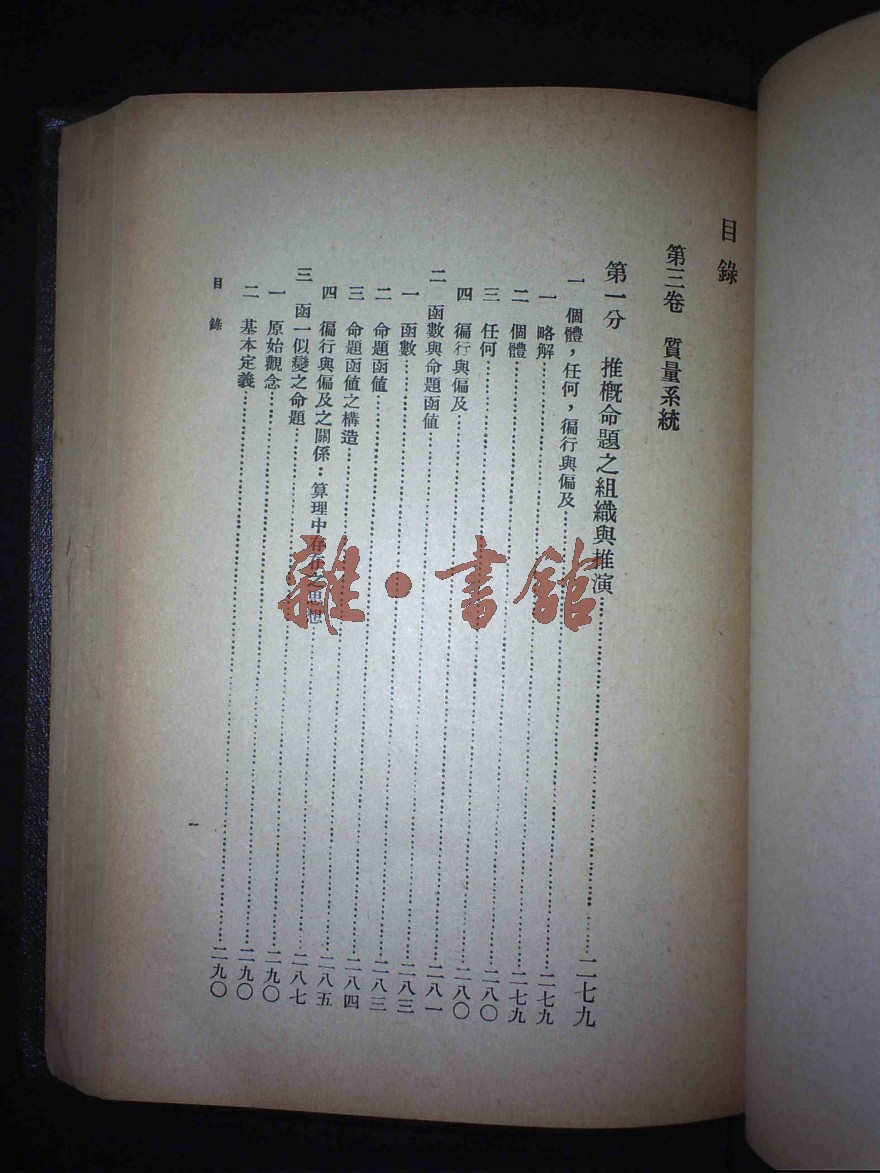 目錄
第三卷 質量系統
第一分 推概命題之組織與推演……二七九
一 個體,任何,徧行與偏及……二七九
一 略解……二七九
二 個體……二八〇
三 任何……二八〇
四 徧行與偏及……二八一
二 函數與命題函值……二八三
一 函數……二八三
二 命題函值……二八四
三 命題函值之構造……二八五
四 徧行與偏及之關係:算理中存在之思想……二八七
三 函一似變之命題……二九〇
一 原始觀念……二九〇
二 基本定義……二九〇
目錄
一
雜·書館